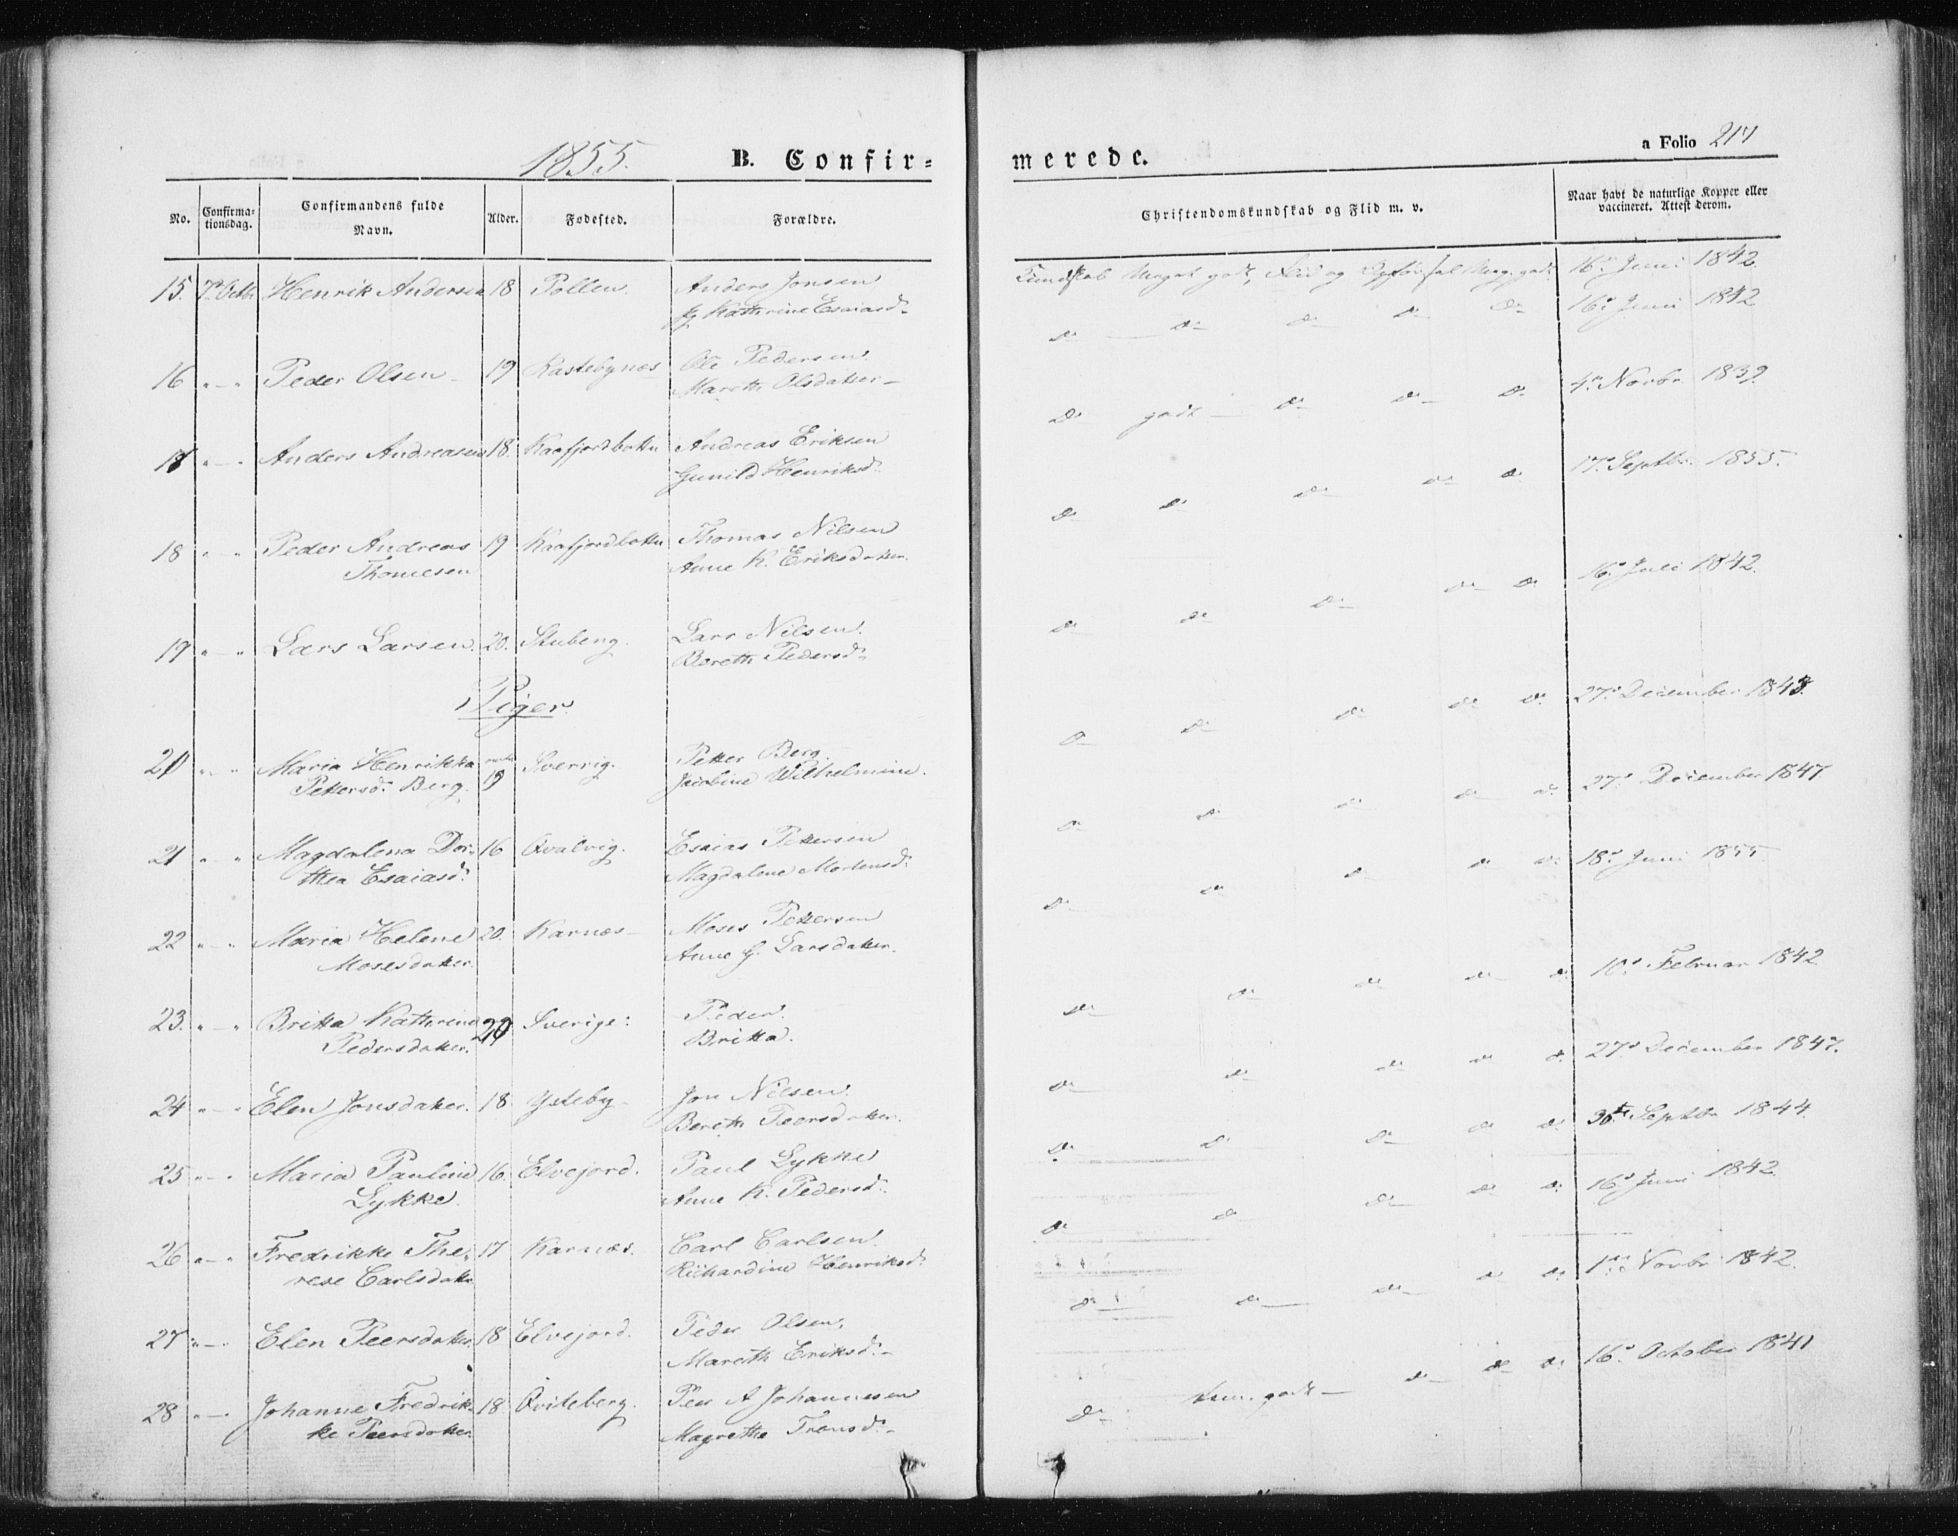 1855. B. Confir= merede. a Folio 217
No. Confirma-tionsdag. Confirmandens fulde Navn. Alder. Fødested. Forældre. Christendomskundskab og Flid m. v. Naar havt de naturlige Kopper eller vaccineret. Attest derom.
15. 7de Octbr Henrik Andersen 18 Pollen. Anders Jonsen Kundskab Meget godt, Flid og Opførsel Meg. godt 16de Juni 1842.
Kathrine Esaiasd. do do do do do 16de Juni 1842
16 " — " Peder Olsen 19 Kastebynæs Ole Pedersen
Mareth Olsdatter — do godt — do do do 4de Novbr 1839.
18 " — " Anders Andreasen 18. Kaafjordbotn Andreas Eriksen
Gunild Henriksd. do do do do do 17de Septbr. 1855.
18 " " Peder Andreas 19 Kaafjordbotn Thomas Nilsen
Thomesen Anne K. Eriksdatter. do do do do do 16de Juli 1842.
19 " — " Lars Larsen. 20. Stuberg. Lars Nilsen.
Bereth Pedersd. do do do do do 27de December 1848.
Piger.
20 " " Maria Henrikka 19 Sverrig. Petter Berg.
Pettersd. Berg. Jacobine Wilhelmine. do do do do do 27de December 1847.
21 " " Magdalena Dor- 16 Qvalvig. Esaias Pettersen
thea Esaiasd. Magdalene Mortensd. do do do do do 18de Juni 1855
22 " — " Maria Helene 20. Karnæs — Moses Pettersen
Mosesdatter. Anne G. Larsdatter. do do do do do 10de Februar 1842
23. " — " Britta Kathrine 20 Sverige: Peder.
Pedersdatter. Britta. do do do do do 27de December 1847.
24 " — " Elen Jonsdatter. 18 Ysteby — Jon Nilsen.
Bereth Peersdatter. do do do do do 30te Septbr 1844.
25 " — " Maria Pauline 16. Elvejord. Paul Lykke
Lykke. Anne K. Pedersd. do do do do do 16de Juni 1842.
26 " — " Fredrikke The- 17 Karnæs. Carl Carlsen.
rese Carlsdatter Richardine Henriksd. do do do do do 1ste Novbr 1842.
27 " — " Elen Peersdatter 18 Elvejord. Peder Olsen,
Mareth Eriksd. — do Kun godt — do do do 16de October 1841
28 " — " Johanne Fredrik- 18. Qviteberg. Peer A Johannesen
ke Peersdatter Magrethe Fransd. —